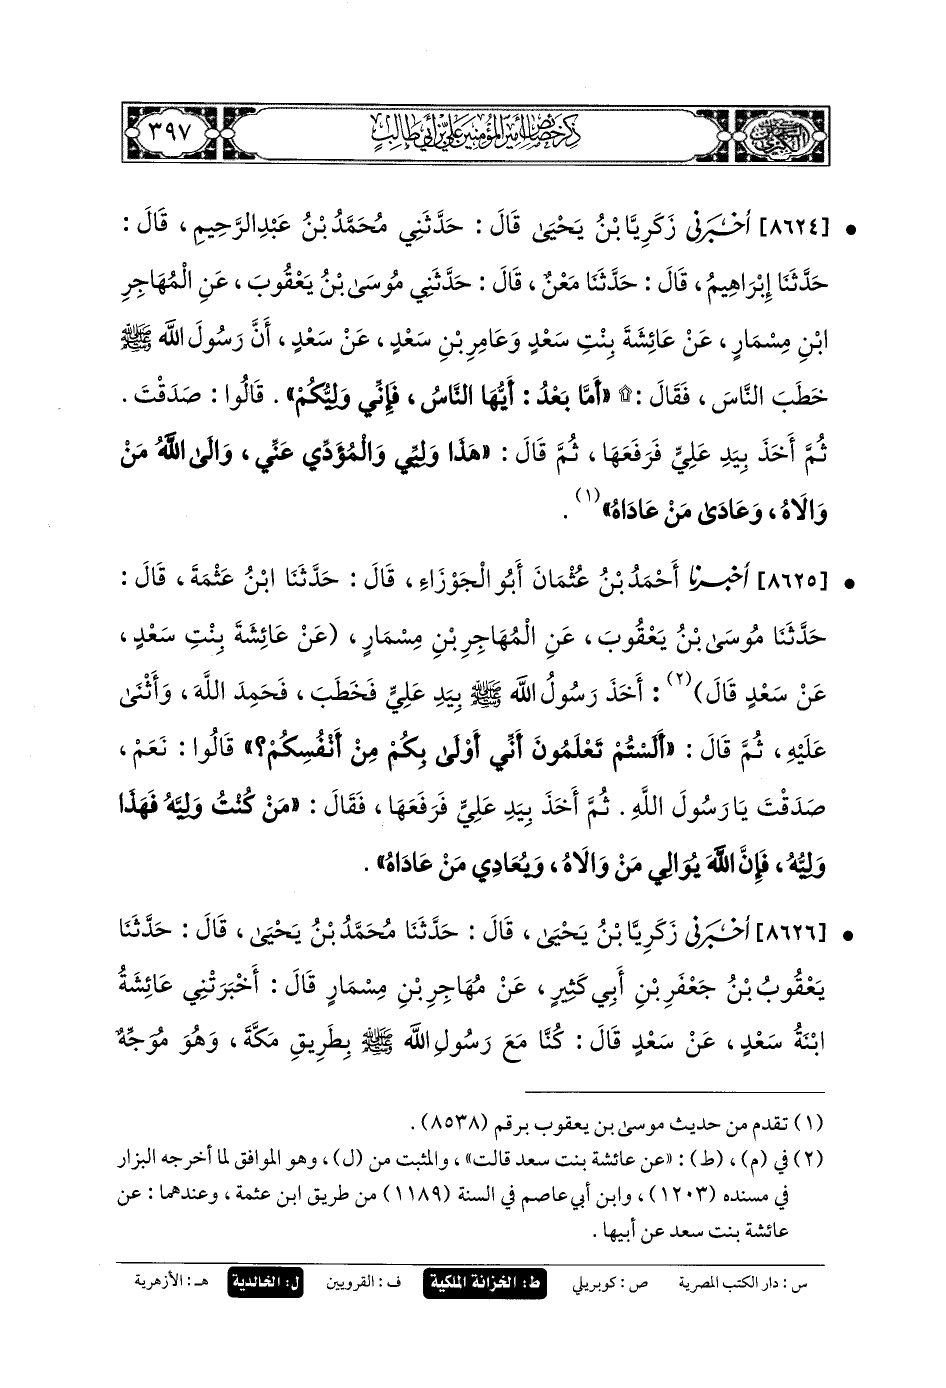 ٣٩٧
ذكر خصائص أمير المؤمنين علي بن أبي طالب
السنن الكبرى
• [٨٦٢٤] أخبرني زَكَرِيَّا بْنُ يَحْيَى قَالَ : حَدَّثَنِي مُحَمَّدُ بْنُ عَبْدِالرَّحِيمِ ، قَالَ :
حَدَّثَنَا إِبْرَاهِيمُ ، قَالَ : حَدَّثَنَا مَعْنٌ ، قَالَ : حَدَّثَنِي مُوسَى بْنُ يَعْقُوبَ ، عَنِ الْمُهَاجِرِ
ابْنِ مِسْمَارٍ ، عَنْ عَائِشَةَ بِنْتِ سَعْدٍ وَعَامِرِ بْنِ سَعْدٍ ، عَنْ سَعْدٍ ، أَنَّ رَسُولَ اللَّه ﷺ
خَطَبَ النَّاسَ ، فَقَالَ : ۩ «أَمَّا بَعْدُ : أَيُّهَا النَّاسُ ، فَإِنِّي وَلِيُّكُمْ» . قَالُوا : صَدَقْتَ .
ثُمَّ أَخَذَ بِيَدِ عَلِيٍّ فَرَفَعَهَا ، ثُمَّ قَالَ : «هَذَا وَلِيِّي وَالْمُؤَدِّي عَنِّي ، وَالَى اللَّهُ مَنْ
وَالَاهُ ، وَعَادَى مَنْ عَادَاهُ» (١) .
• [٨٦٢٥] أخبرنا أَحْمَدُ بْنُ عُثْمَانَ أَبُو الْجَوْزَاءِ ، قَالَ : حَدَّثَنَا ابْنُ عَثْمَةَ ، قَالَ :
حَدَّثَنَا مُوسَى بْنُ يَعْقُوبَ ، عَنِ الْمُهَاجِرِ بْنِ مِسْمَارٍ ، (عَنْ عَائِشَةَ بِنْتِ سَعْدٍ ،
عَنْ سَعْدٍ قَالَ) (٢) : أَخَذَ رَسُولُ اللَّه ﷺ بِيَدِ عَلِيٍّ فَخَطَبَ ، فَحَمِدَ اللَّهَ ، وَأَثْنَى
عَلَيْهِ ، ثُمَّ قَالَ : «أَلَسْتُمْ تَعْلَمُونَ أَنِّي أَوْلَى بِكُمْ مِنْ أَنْفُسِكُمْ؟» قَالُوا : نَعَمْ ،
صَدَقْتَ يَا رَسُولَ اللَّهِ . ثُمَّ أَخَذَ بِيَدِ عَلِيٍّ فَرَفَعَهَا ، فَقَالَ : «مَنْ كُنْتُ وَلِيَّهُ فَهَذَا
وَلِيُّهُ ، فَإِنَّ اللَّهَ يُوَالِي مَنْ وَالَاهُ ، وَيُعَادِي مَنْ عَادَاهُ» .
• [٨٦٢٦] أخبرني زَكَرِيَّا بْنُ يَحْيَى ، قَالَ : حَدَّثَنَا مُحَمَّدُ بْنُ يَحْيَى ، قَالَ : حَدَّثَنَا
يَعْقُوبُ بْنُ جَعْفَرِ بْنِ أَبِي كَثِيرٍ ، عَنْ مُهَاجِرِ بْنِ مِسْمَارٍ قَالَ : أَخْبَرَتْنِي عَائِشَةُ
ابْنَةُ سَعْدٍ ، عَنْ سَعْدٍ قَالَ : كُنَّا مَعَ رَسُولِ اللَّه ﷺ بِطَرِيقِ مَكَّةَ ، وَهُوَ مُوَجِّهٌ
(١) تقدم من حديث موسى بن يعقوب برقم (٨٥٣٨) .
(٢) في (م) ، (ط) : «عن عائشة بنت سعد قالت» ، والمثبت من (ل) ، وهو الموافق لما أخرجه البزار
في مسنده (١٢٠٣) ، وابن أبي عاصم في السنة (١١٨٩) من طريق ابن عثمة ، وعندهما : عن
عائشة بنت سعد عن أبيها .
س : دار الكتب المصرية ص : كوبريلي ط : الخزانة الملكية ف : القرويين ل : الخالدية هـ : الأزهرية